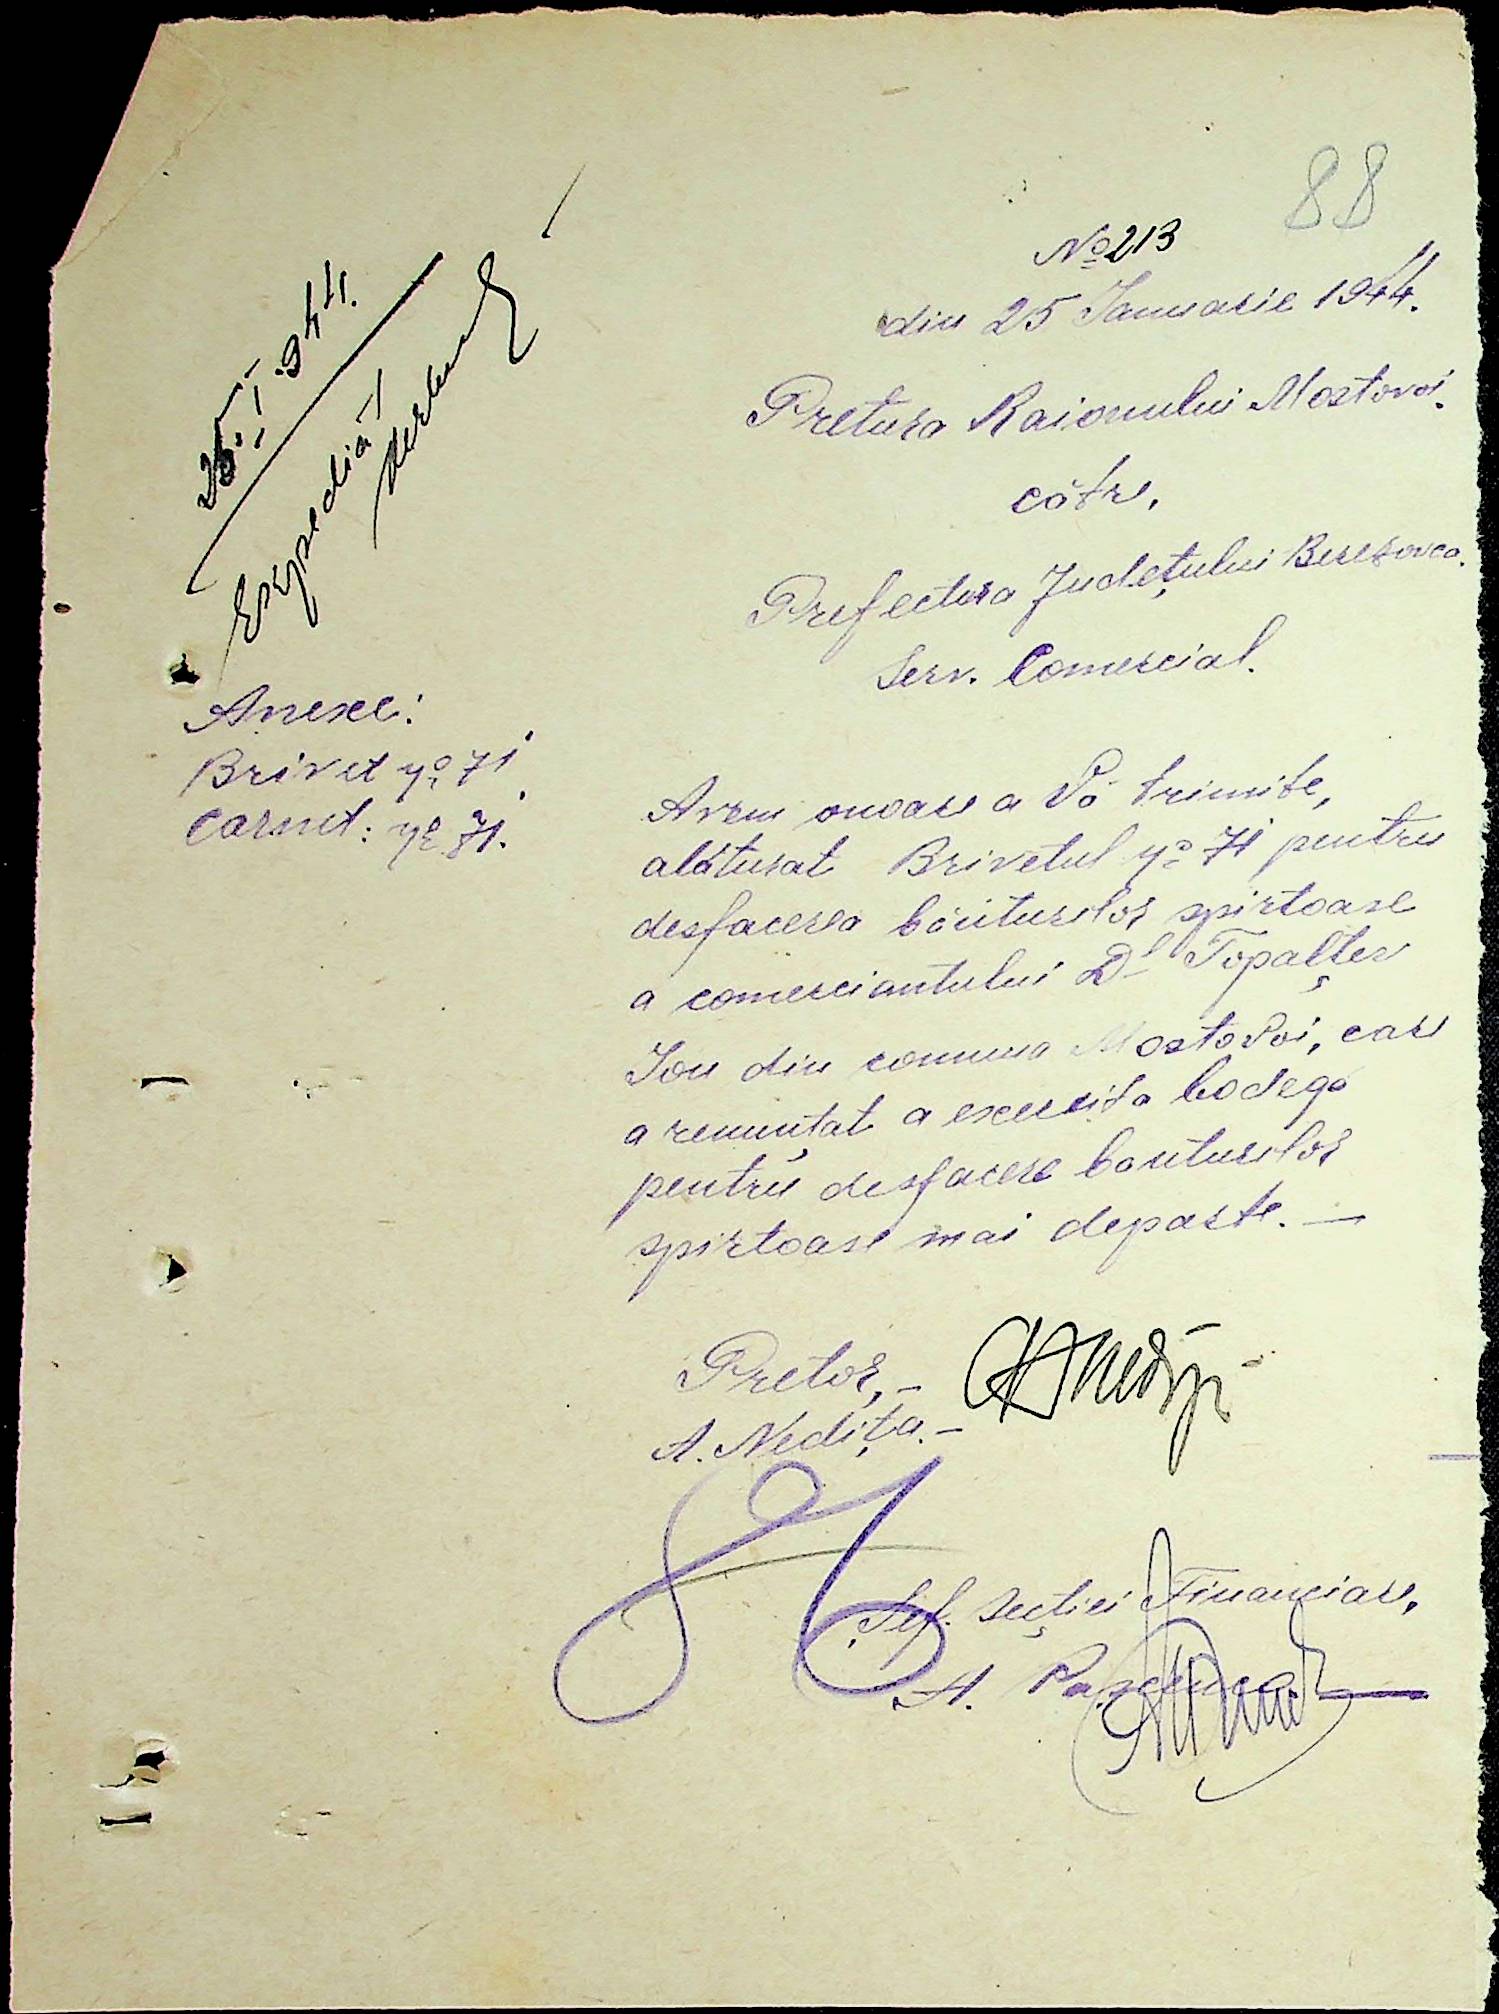 88
No 213
din 25 Ianuarie 1944.
Pretura Raionului Mostovoi.
cótre,
Prefectura Județului Beresovca.
Serv. Comercial.
25.I.944.
Expediat
Anexe:
Brivet No 71
Carnet: No 71.
Avem onoare a Vó trimite,
alóturat Brivetul No 71 pentru
desfacerea bóuturilor spirtoase
a comerciantului Dl Topalțev
Ion din comuna Mostovoi, care
a renunțat a exercita bodegó
pentru desfacere bauturilor
spirtoase mai departe. —
Pretor, –
A. Nedița. –
Șef. Secției Financiare,
A.